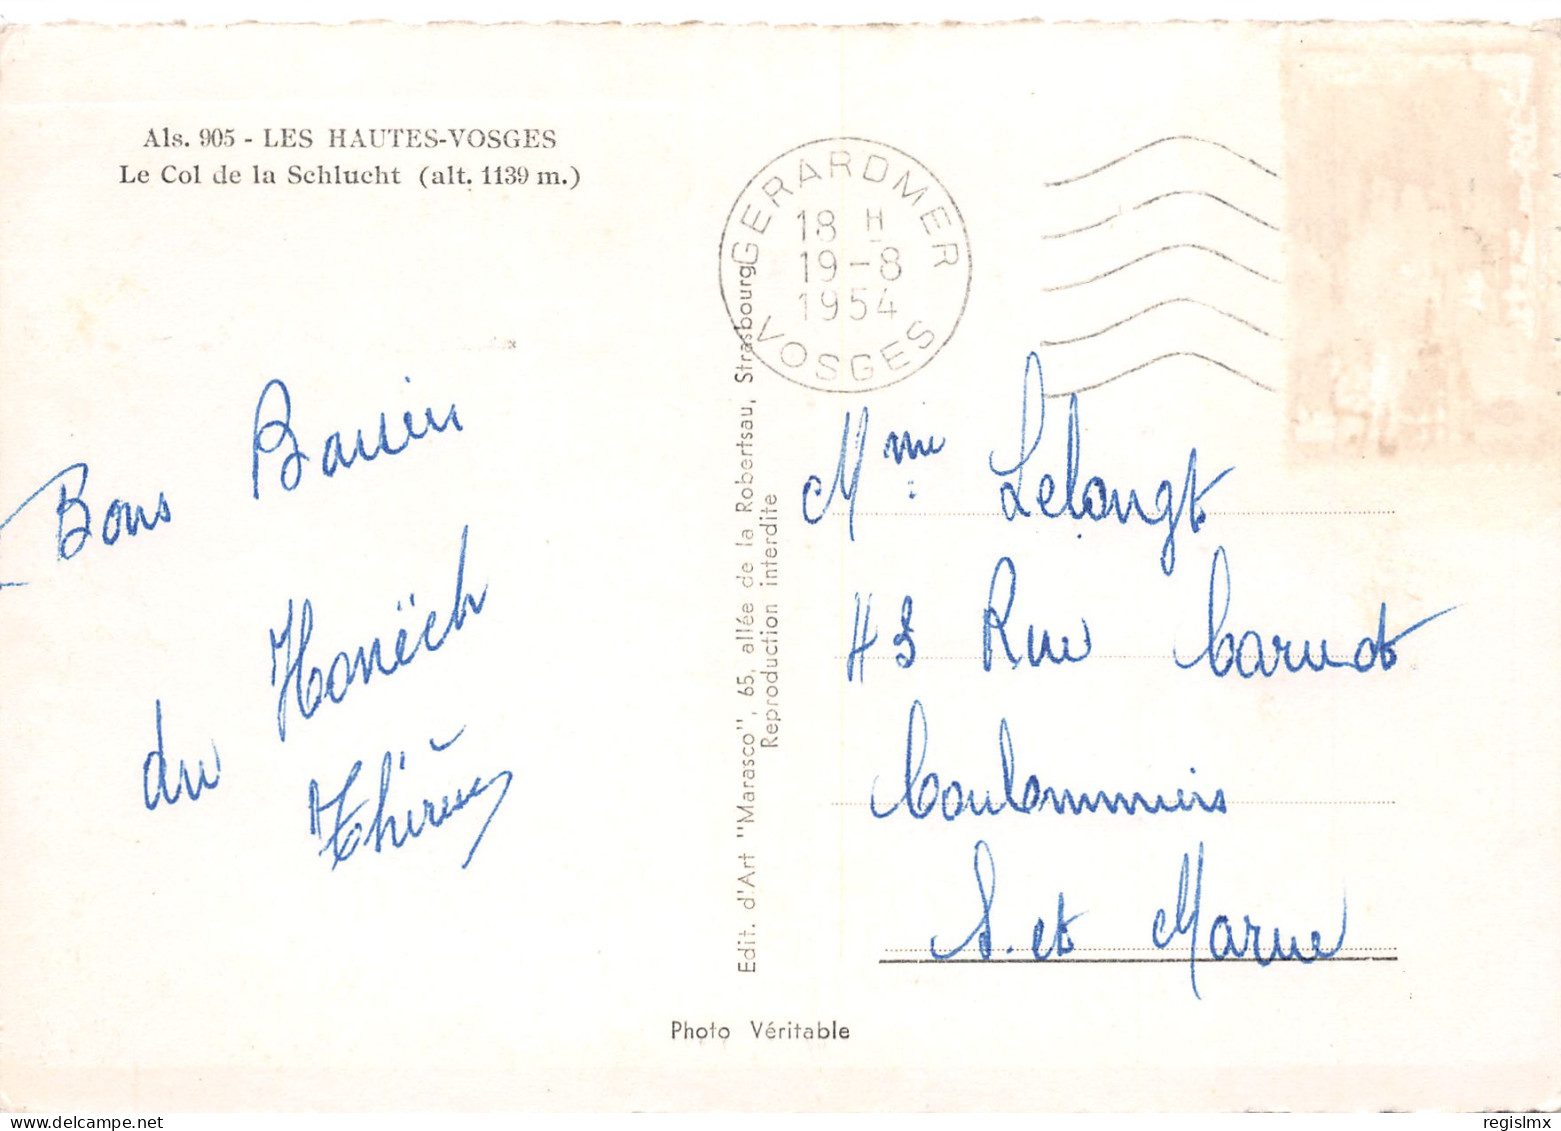 Als. 905 - LES HAUTES-VOSGES
Le Col de la Schlucht (alt. 1139 m.)
GERARDMER
18 H
19-8
1954
VOSGES
Bons Baisers
du Honëch
Thérèse
Edit. d'Art "Marasco", 65, allée de la Robertsau, Strasbourg
Reproduction interdite
Mme Lelongt
43 Rue Carnot
Coulommiers
S. et Marne
Photo Véritable
regislmx